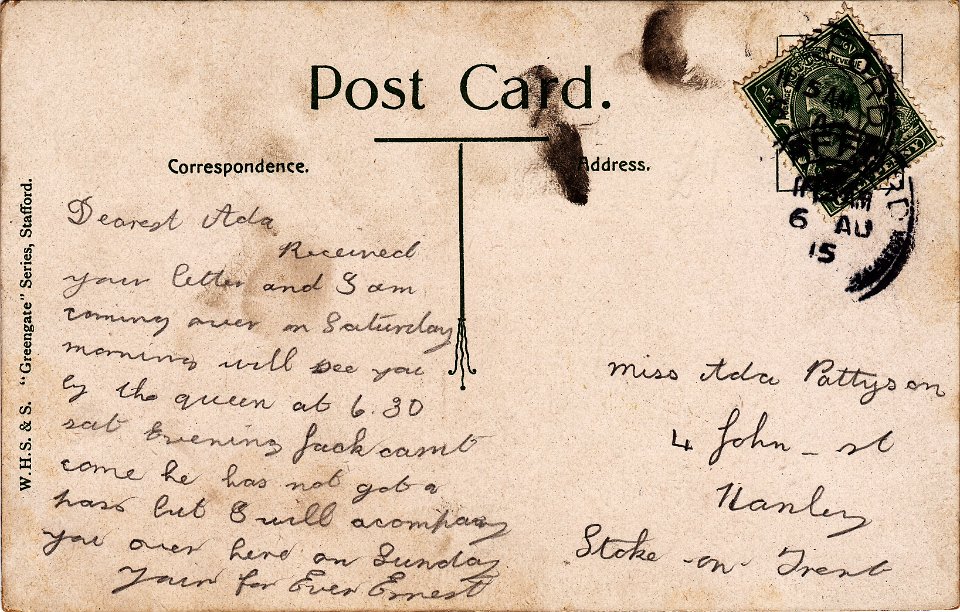 Post Card.
Correspondence.
Address.
W.H.S. & S. "Greengate" Series, Stafford.
Dearest Ada
Received
your letter and I am
coming over on Saturday
morning will see you
by the queen at 6.30
sat Evening Jack cannt
come he has not got a
pass but I will acompany
you over here on Sunday
Yours for Ever Ernest
Miss Ada Pattyson
4 John - st
Hanley
Stoke-on-Trent
11 15 AM
6 AU
15